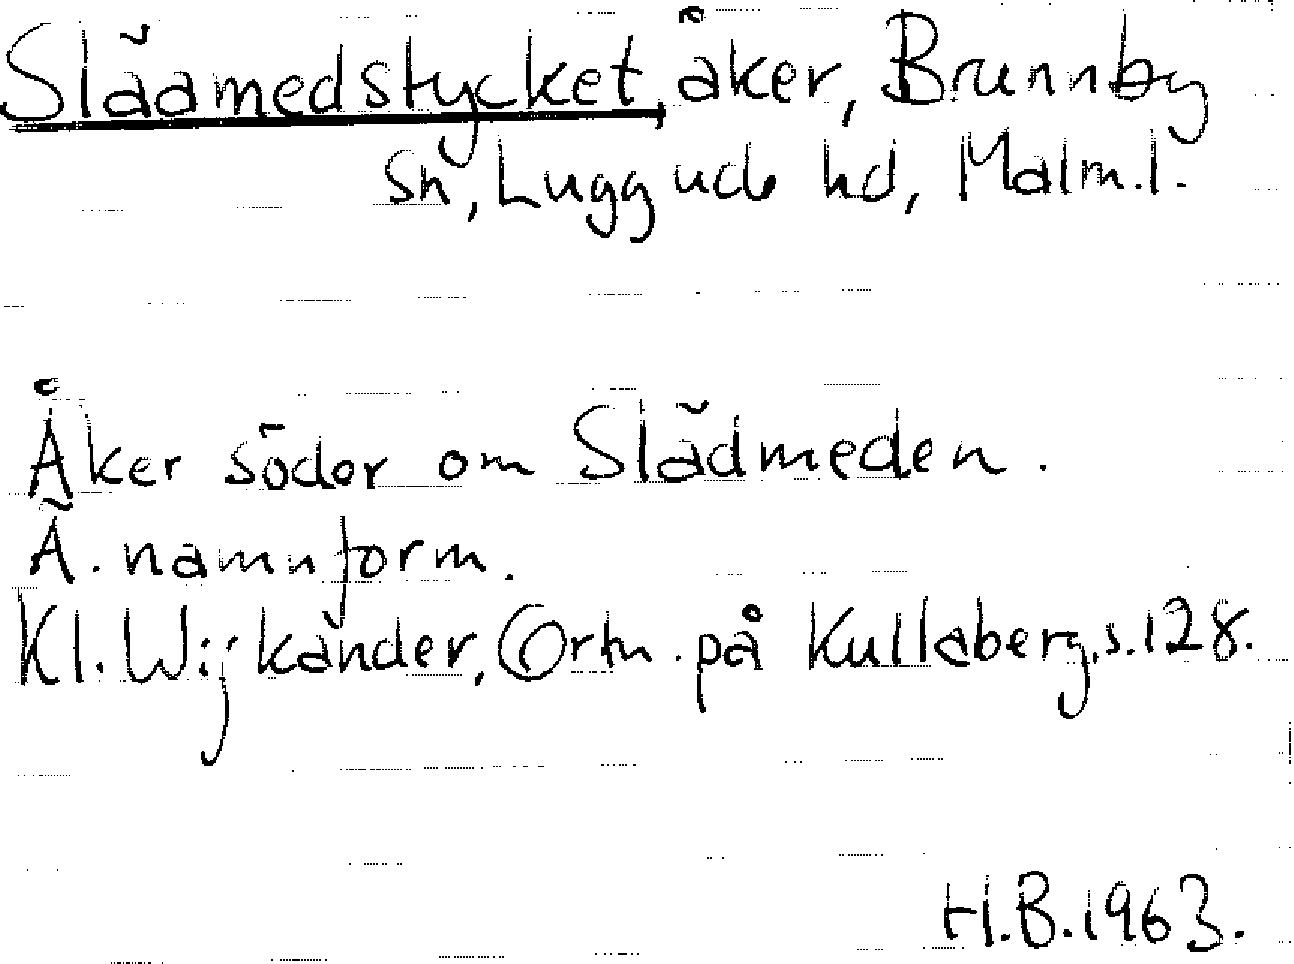 Släamedstycket, åker, Brunnby
sn, Luggude hd, Malm.l.
Åker söder om Slädmeden.
Ä. namnform.
Kl. Wijkander, Ortn. på Kullaberg, s. 128.
H.B. 1963.